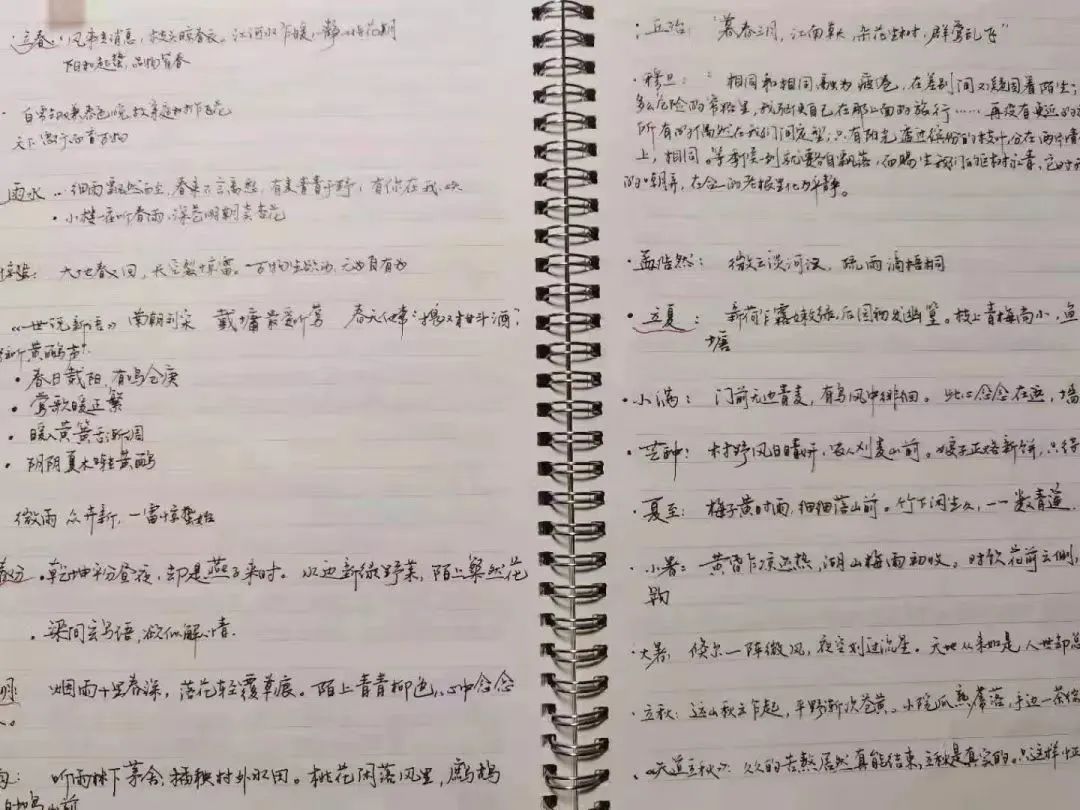 立春：风来生消息，枝头晾春衣。江河水乍暖，静待花期
阳和起蛰，品物皆春
· 白雪却嫌春色晚，故穿庭树作飞花
天下
雨水：细雨飘然而至，春来不言离愁，有麦青青于野，有你在我心头
· 小楼一夜听春雨，深巷明朝卖杏花
惊蛰：大地春又回，长空裂惊雷。万物生欲动，无为自有为
《世说新语》南朝刘宋 戴墉 春天 携双柑斗酒"，
往听黄鹂声"
· 春日载阳，有鸣仓庚
· 莺歌暖正繁
· 暖入黄簧舌渐调
· 阴阴夏木啭黄鹂
微雨众卉新，一雷惊蛰始
春分：乾坤平分昼夜，却是燕子来时。水边新绿野菜，陌上粲然花
· 梁间玄鸟语，欲似解人情
明：烟雨十里春深，落花轻覆草痕。陌上青青柳色，心中念念
人。
听雨林下茅舍，插秧村外水田。桃花闲落风里，鹧鸪
山前
丘迟："暮春三月，江南草长，杂花生树，群莺乱飞"
· 穆旦："相同和相同溶为疲倦，在差别间又凝固着陌生；
多么危险的窄路里，我驱使自己在那上面的旅行……再没有更近的接
所有的偶然在我们间定型；只有阳光透过缤纷的枝叶分在两片情
上，相同。等季候一到就要各自飘落，而赐生我们的巨树永青，它对我
的嘲弄，在合一的老根里化为平静。
· 孟浩然：微云淡河汉，疏雨滴梧桐
· 立夏：新荷乍露嫩绿，后园初发幽篁。枝上青梅尚小，鱼
塘
· 小满：门前无边青麦，有鸟风中徘徊。此心念念在兹，墙
· 芒种：村野风日晴开，农人刈麦山前。娘子正烙新饼，只待
· 夏至：梅子黄时雨，细细落山前。竹下闲坐久，一一数青莲
· 小暑：黄昏乍凉还热，湖山梅雨初收。对饮荷前云侧，
钩
· 大暑：倏尔一阵微风，夜空划过流星。天地从来如是，人世却总
· 立秋：远山秋云乍起，平野渐次苍黄。小院瓜熟蒂落，手边一茶
天道立秋：久久的苦熬居然真能结束，立秋是真实的。只这样